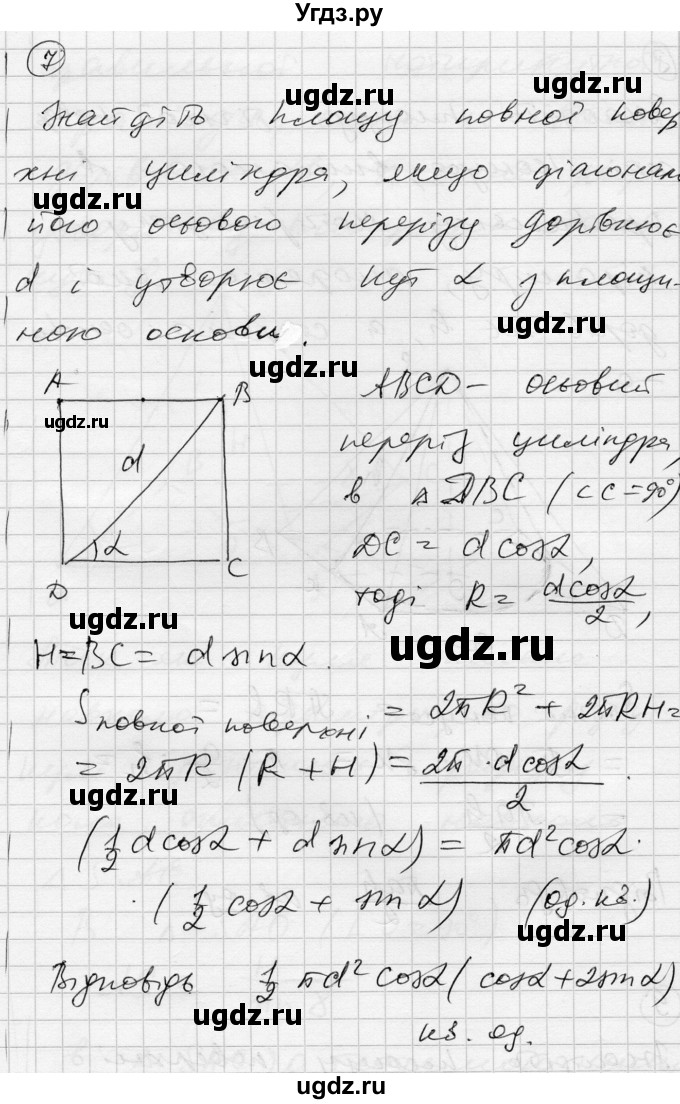 Угдз.ру
7
Знайдіть площу повної повер
хні циліндра, якщо діагонал
його осьового перерізу дорівнює
d і утворює кут α з площи-
ною основи.
A B
d
α
D C
ABCD - осьовий
переріз циліндра,
в △DBC (∠C = 90°)
DC = d cosα,
тоді R = d cosα / 2,
H = BC = d sinα.
S повної поверхні = 2πR² + 2πRH =
= 2πR (R + H) = 2π · d cosα / 2 ·
(1/2 d cosα + d sinα) = πd² cosα ·
· (1/2 cosα + sinα) (од. кв.)
Відповідь 1/2 πd² cosα (cosα + 2sinα)
кв. од.
ugdz.ru
ugdz.ru
ugdz.ru
ugdz.ru
ugdz.ru
ugdz.ru
ugdz.ru
ugdz.ru
ugdz.ru
ugdz.ru
ugdz.ru
ugdz.ru
ugdz.ru